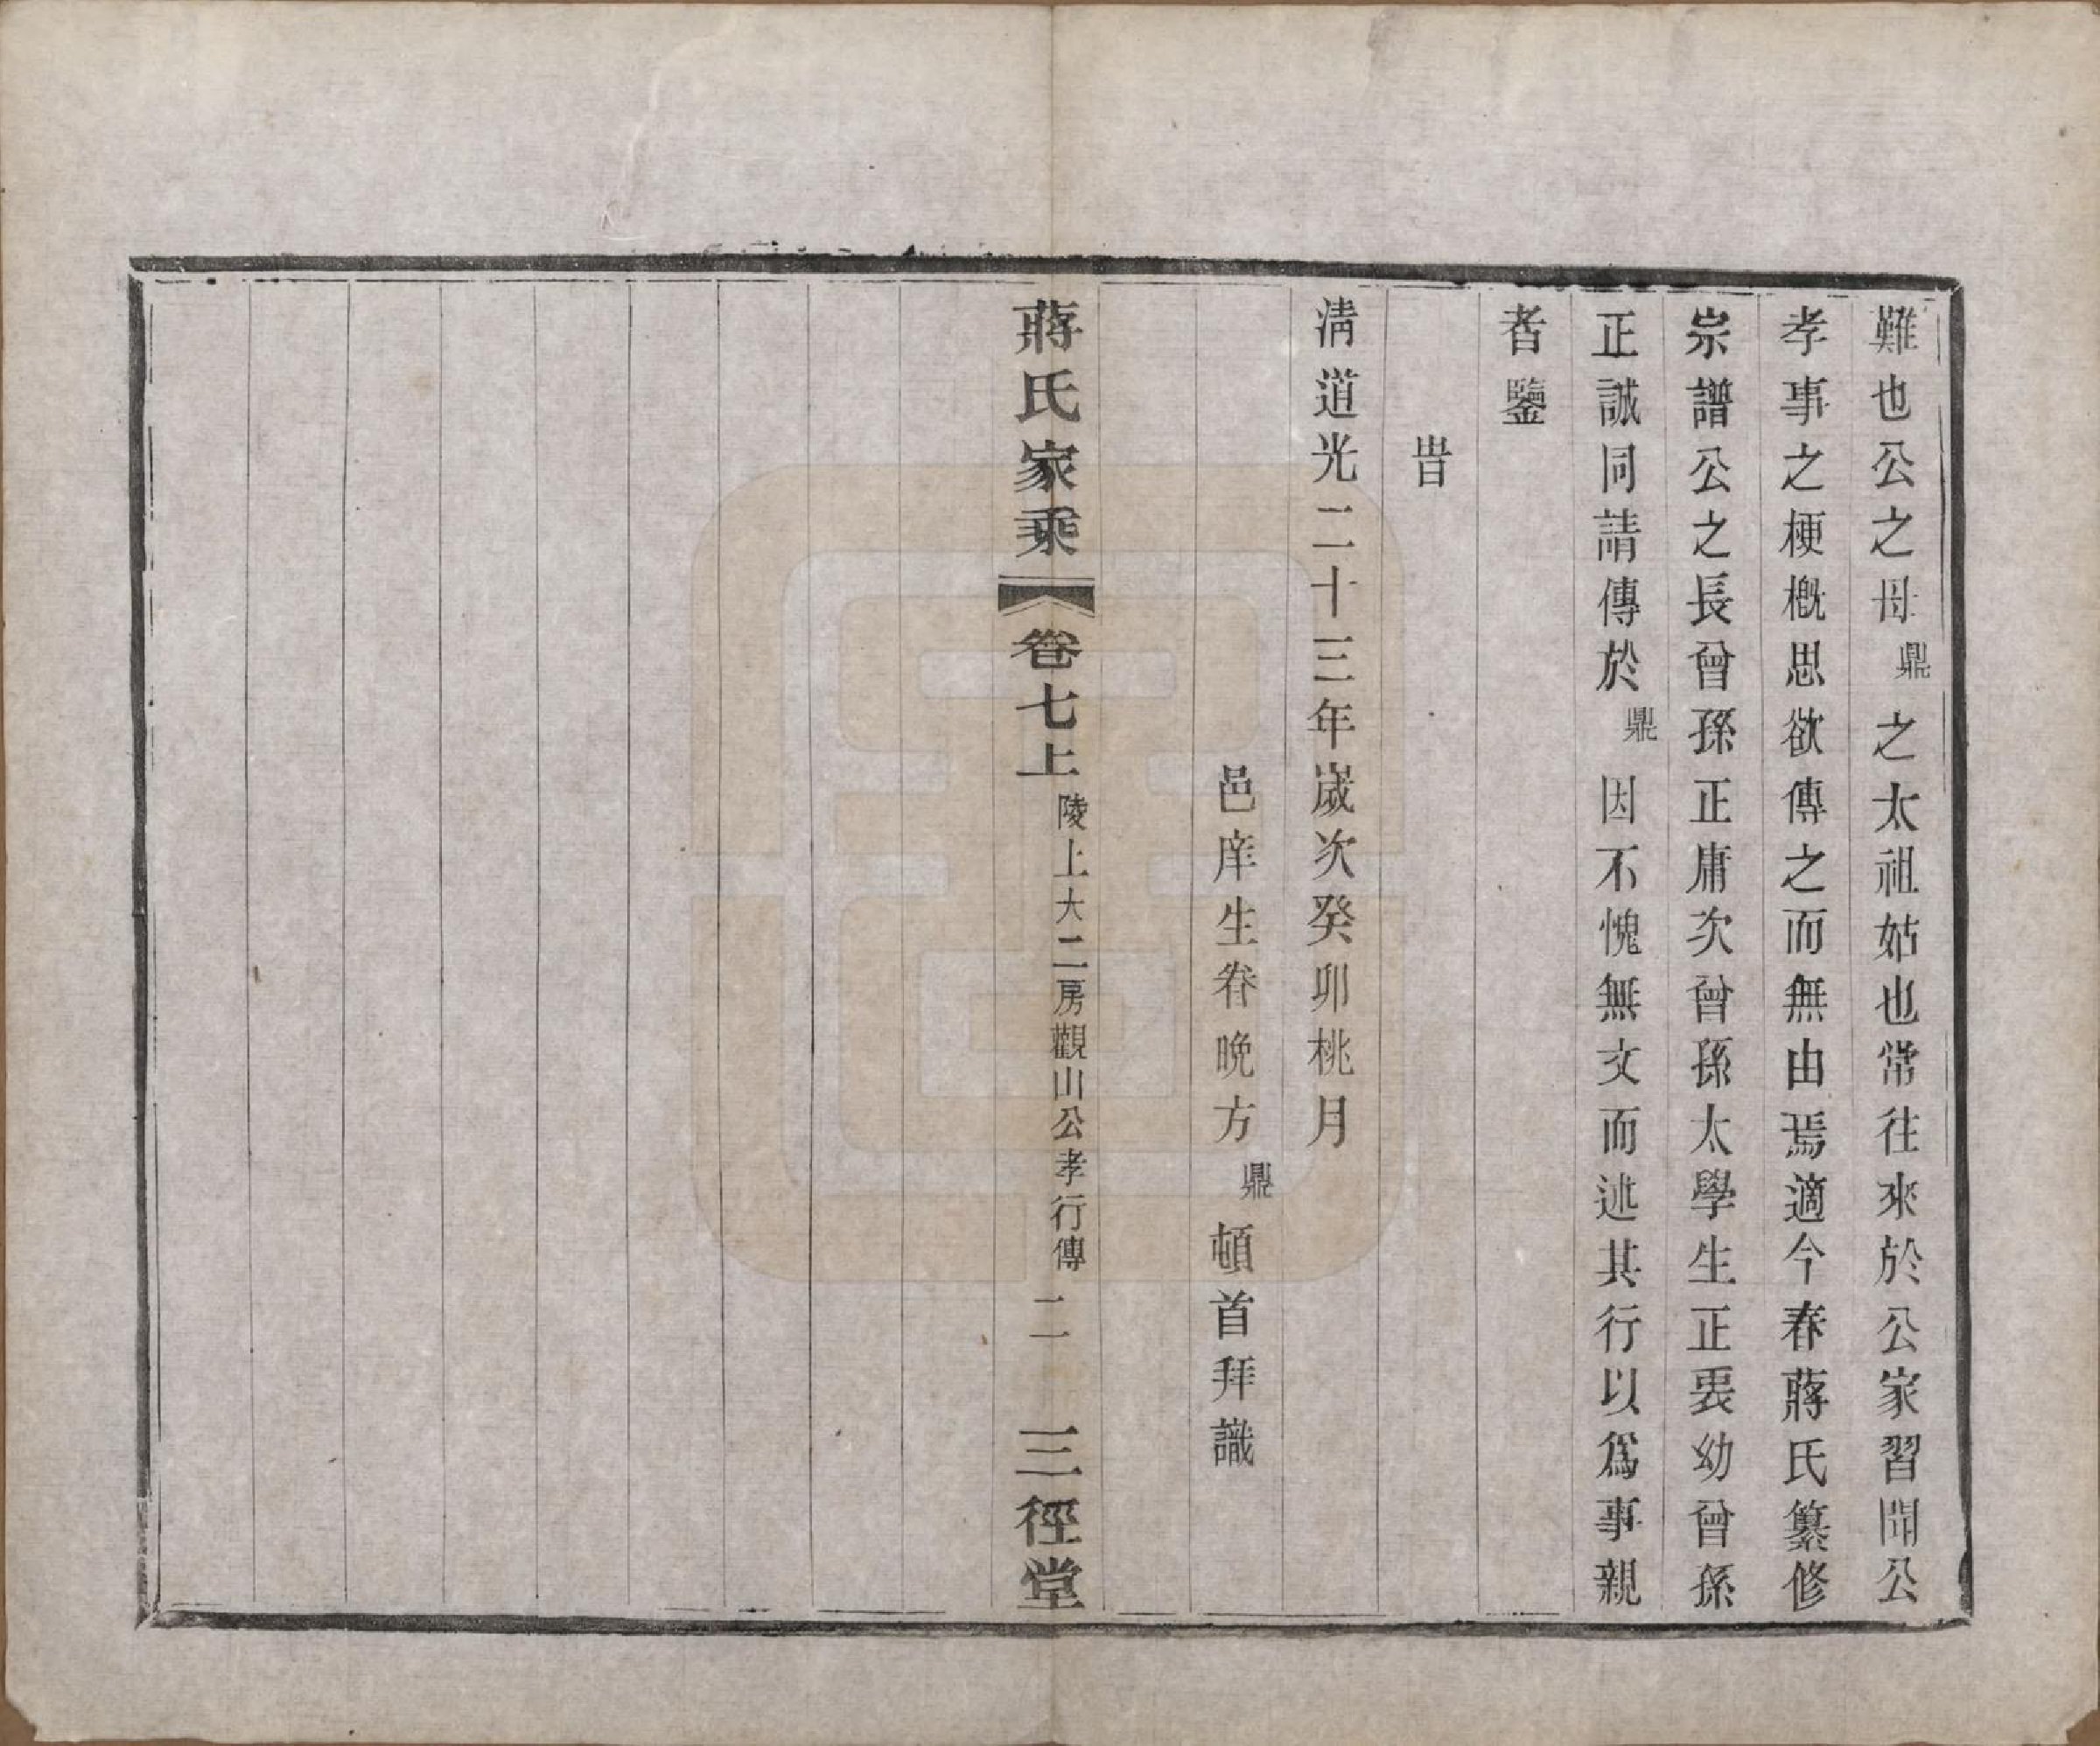 難也公之母鼎之太祖姑也常往來於公家習聞公
孝事之梗槪思欲傳之而無由焉適今春蔣氏纂修
宗譜公之長曾孫正庸次曾孫太學生正裴幼曾孫
正誠同請傳於鼎因不愧無文而述其行以爲事親
者鑒
旹
淸道光二十三年歲次癸卯桃月
邑庠生眷晚方鼎頓首拜識
蔣氏家乘 卷七上 陵上大二房觀山公孝行傳 二 三徑堂